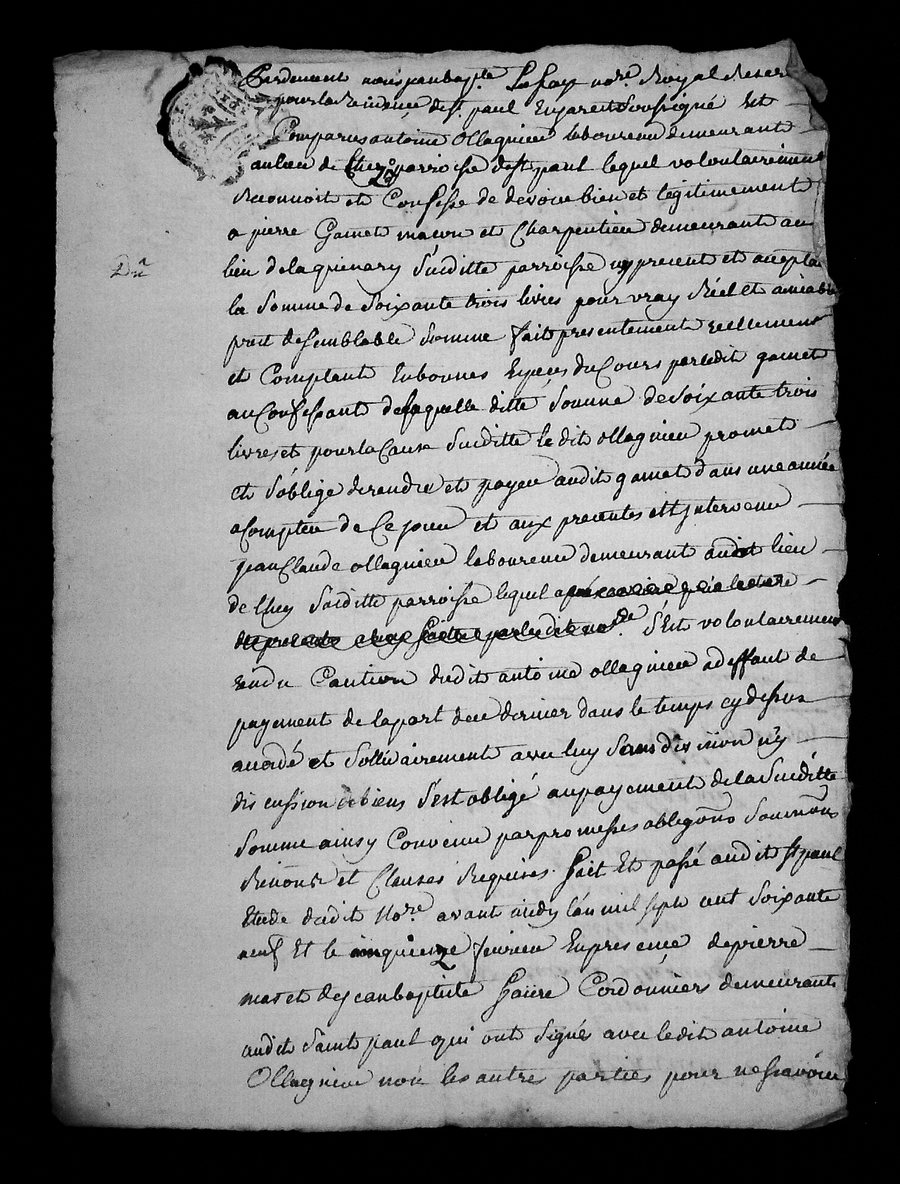 Pardevant nous jean baptiste Lafay no.re Royal Reservé
pour la Residence de st. paul En jarest Soussigné Est
Comparus antoine Ollagnieu laboureur demeurant
au lieu de Chez parroisse de st paul lequel volontairement
Reconnoit et Confesse de devoir bien et legitimement
a pierre Gamet macon et Charpentier demeurant au
lieu de la quinary Susditte parroisse icy present et acceptan
la Somme de Soixante trois livres pour vray Réel et amiable
pret de Semblable Somme fait presentement reellement
et Comptant En bonnes Especes du Cours par ledit gamet
au Confessant de laquelle ditte Somme de Soixante trois
livres et pour la Cause Susditte le dit ollagnieu promet
et S'oblige de rendre et payer audit gamet dans une année
a Compter de Ce jour et aux presentes est Intervenu
jean Claude ollagnieu laboureur demeurant audit lieu
de Chez Susditte parroisse lequel
S'est volontairement
rendu Caution dudit antoine ollagnieu a deffaut de
payement de la part de ce dernier dans le temps cy dessus
acordé et Sollidairement avec luy Sans division n'y
discussion de biens S'est obligé au payement de la Susditte
Somme ainsy Convenu par promesses obligons Soumons
Renons et Clauses Requises. fait Et passé audit st paul
Etude dudit No.re avant midy l'an mil sept cent Soixante
neuf Et le cinquieme fevrier En presence de pierre
mat et de jean baptiste faure Cordonniers demeurants
audit Saint paul qui ont Signés avec le dit antoine
Ollagnieu non les autres parties pour ne Sçavoir
Du